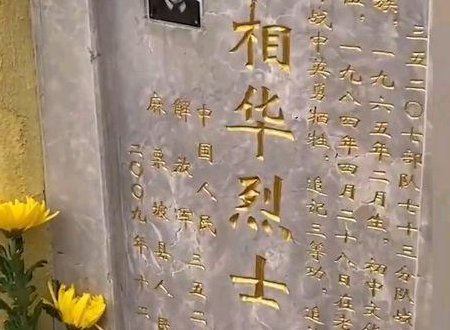 三五二〇七部队七十三分队战
族，一九六五年二月生，初中文
，一九八四年四月二十八日在
战中英勇牺牲，追记三等功，追
相华烈士
中国人民三五二
解放军
麻栗坡县人民
二〇〇九年十二